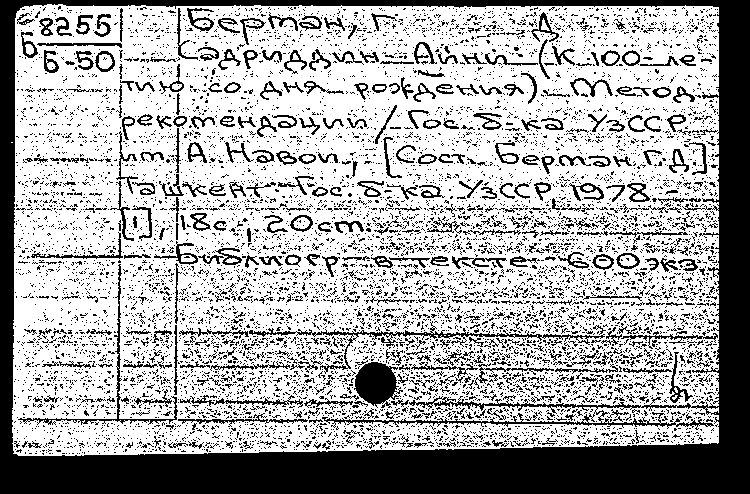 Б 8255
Б-50
Берман, Г. Д.
Садриддин Айни (К 100-ле-
тию со дня рождения). Метод.
рекомендации / Гос. б-ка УзССР
им. А. Навои, [Сост. Берман Г.Д.]
Ташкент: Гос. б-ка УзССР, 1978. -
[1], 18с.; 20 ст.
Библиогр. в тексте. 600 экз.